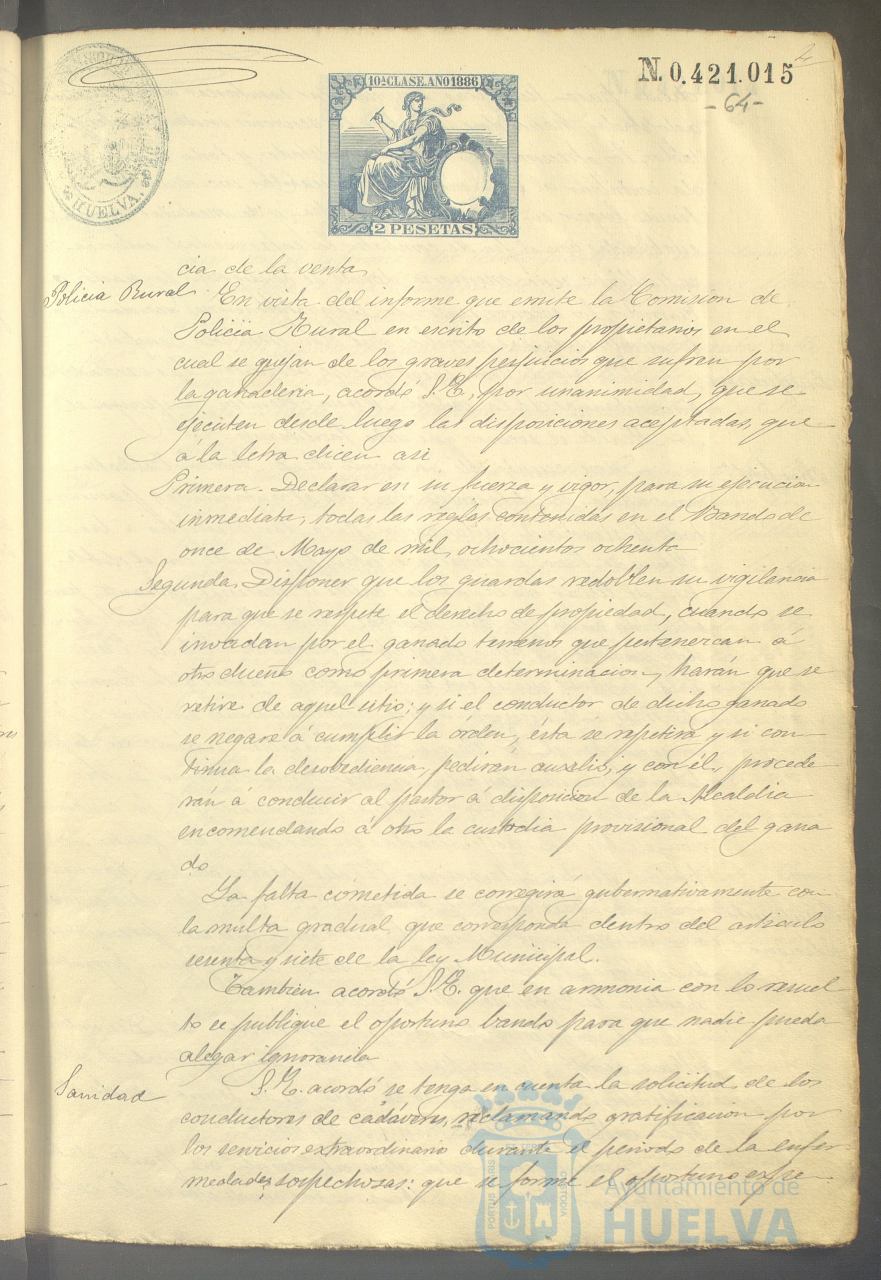 10ª CLASE. AÑO 1886
N. 0.421.015
-64-
2 PESETAS
HUELVA.
cia de la venta
Policia Rural
En vista del informe que emite la Comision de
Policia Rural en escrito de los propietarios en el
cual se quejan de los graves perjuicios que sufran por
la ganaderia, acordó S.E. por unanimidad, que se
ejecuten desde luego las disposiciones aceptadas, que
á la letra dicen asi
Primera. Declarar en su fuerza y vigor, para su ejecucion
inmediata, todas las reglas contenidas en el Bando de
once de Mayo de mil ochocientos ochenta
Segunda. Disponer que los guardas redoblen su vigilancia
para que se respete el derecho de propiedad, cuando se
invadan por el ganado terrenos que pertenezcan á
otro dueño como primera determinacion, harán que se
retire de aquel sitio; y si el conductor de dicho ganado
se negare á cumplir la órden, ésta se repetirá y si con
tinua la desobediencia, pedirán auxilio, y con él, procede
rán á conducir al pastor á disposicion de la Alcaldia
encomendando á otro la custodia provisional del gana
do
La falta cometida se corregirá gubernativamente con
la multa gradual, que corresponda dentro del articulo
setenta y siete de la ley Municipal.
Tambien acordó S.E. que en armonia con lo resuel
to se publique el oportuno bando para que nadie pueda
alegar ignorancia
Sanidad
S.E. acordó se tenga en cuenta la solicitud de los
conductores de cadáveres, reclamando gratificacion por
los servicios extraordinario durante el periodo de la enfer
medades sospechosas: que se forme el oportuno expe
PORTUS MARIS ET TERRAE CUSTODIA
Ayuntamiento de
HUELVA